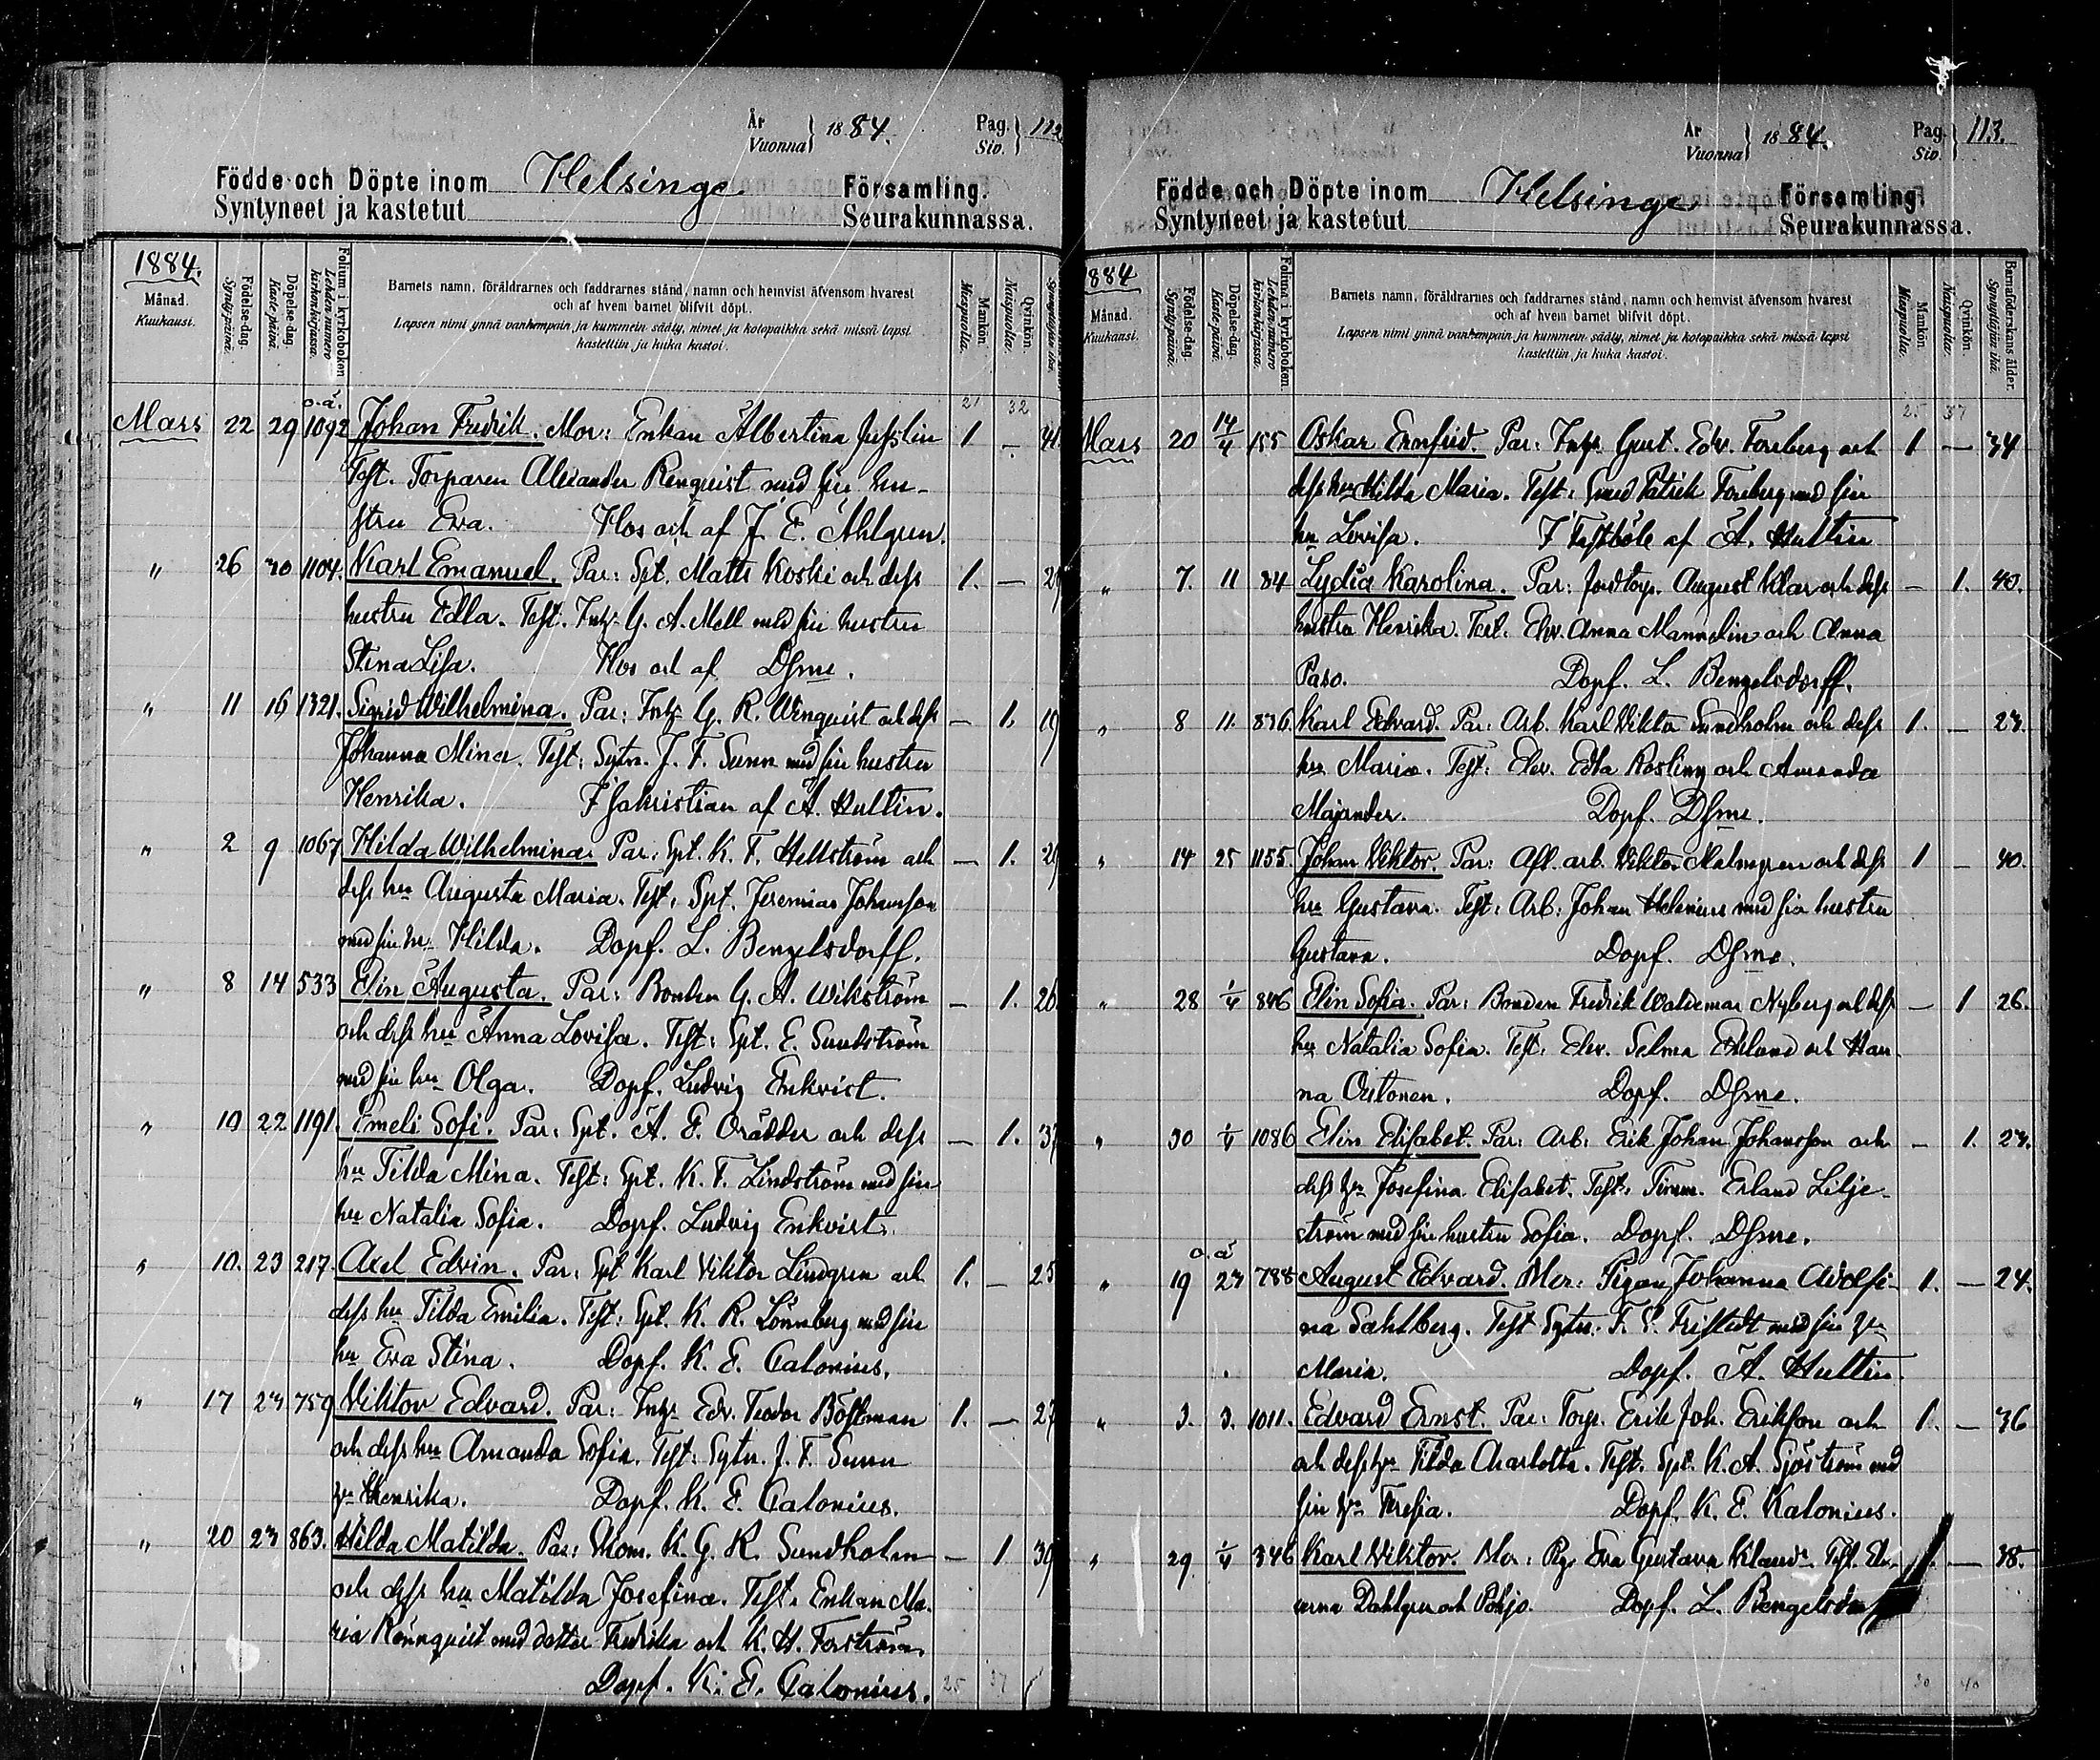 År
Vuonna } 1884.
Pag.
Siv. } 112
Födde och Döpte inom Helsinge Församling.
Syntyneet ja kastetut Seurakunnassa.
1884.
Månad.
Kuukausi.
Födelse-dag.
Synty-päivä.
Döpelse-dag.
Kaste-päivä.
Folium i kyrkoboken.
Lehden numero
kirkonkirjassa.
Barnets namn, föräldrarnes och faddrarnes stånd, namn och hemvist äfvensom hvarest
och af hvem barnet blifvit döpt.
Lapsen nimi ynnä vanhempain ja kummein sääty, nimet ja kotopaikka sekä missä lapsi
kastettiin ja kuka kastoi.
Mankön.
Miespuolia.
Qvinkön.
Naispuolia.
21 32
o.ä.
Mars 22 29 1092 Johan Fredrik. Mor: Enkan Albertina 1 — 41
Test. Torparen Alexander Renquist med sin hu-
stru Eva. Hos och af J. E. Ahlgren.
" 26 30 1104. Karl Emanuel. Par: Spt. Matts Koski och dess 1. — 29
hustru Edla. Test. Inh. G. A. Mell med sin hustru
Stina Lisa. Hos och af Dsme.
" 11 16 1321. Sigrid Wilhelmina. Par: Inh. G. R. Wenquist och dess — 1. 19
Johanna Mina. Test: Sytn. J. F. Sunn med sin hustru
Henrika. I Sakristian af A. Hultin.
" 2 9 1067 Hilda Wilhelmina. Par: Spt. K. F. Hellström och — 1. 29
dess hu Augusta Maria. Test. Spt. Jeremias Johansson
med sin hu Hilda. Dopf. L. Bengelsdorff.
" 8 14 533 Elin Augusta. Par: Bonden G. A. Wikström — 1. 26
och dess hu Anna Lovisa. Test: Spt. E. Sundström
med sin hu Olga. Dopf. Ludvig Enkvist.
" 10 22 1191. Emeli Sofi. Par: Spt. A. E. Orädder och dess — 1. 37
hu Tilda Mina. Test: Spt. K. F. Lindström med sin
hu Natalia Sofia. Dopf. Ludvig Enkvist.
" 10. 23 217. Axel Edvin. Par: Spt Karl Viktor Lindgren och 1. — 25
dess hu Tilda Emilia. Test: Spt. K. R. Lönnberg med sin
hu Eva Stina. Dopf. K. E. Calonius.
" 17 23 759 Viktor Edvard. Par: Inh. Edv. Teodor Böstman 1. — 27
och dess hu Amanda Sofia. Test: Sytn. J. F. Sunn
hu Henrika. Dopf. K. E. Calonius.
" 20 23 863. Hilda Matilda. Par: Skom. K. G. R. Sundholm — 1 39
och dess hu Matilda Josefina. Test. Enkan Ma-
ria Rönnquist med dotter Fredrika och K. H. Forström.
Dopf. K. E. Calonius.
25 37
År
Vuonna } 1884.
Pag.
Siv. } 113.
Födde och Döpte inom Helsinge Församling.
Syntyneet ja kastetut Seurakunnassa.
1884
Månad.
Kuukausi.
Födelse-dag.
Synty-päivä.
Döpelse-dag.
Kaste-päivä.
Folium i kyrkoboken.
Lehden numero
kirkonkirjassa.
Barnets namn, föräldrarnes och faddrarnes stånd, namn och hemvist äfvensom hvarest
och af hvem barnet blifvit döpt.
Lapsen nimi ynnä vanhempain ja kummein sääty, nimet ja kotopaikka sekä missä lapsi
kastettiin ja kuka kastoi.
Mankön.
Miespuolia.
Qvinkön.
Naispuolia.
Barnaföderskans ålder.
Synnyttäjän ikä.
25 37
Mars 20 14/4 155 Oskar Ennfrid. Par: Inh. Gust. Edv. Forsberg och 1 — 34
dess hu Hilda Maria. Test: Smed Patrik Forsberg med sin
hu Lovisa. I af A. Hultin
" 7. 11 34 Lydia Karolina. Par: Jordtorp. August Klar och dess — 1. 40.
hustru Henrika. Test. Elev. Anna Mannelin och Anna
Paso. Dopf. L. Bengelsdorff.
" 8 11. 836. Karl Edvard. Par: Arb. Karl Viktor Sundholm och dess 1. — 23.
hu Maria. Test: Elev. Edla Rosling och Amanda
Majander. Dopf. Dsme.
" 14 25 1155. Johan Viktor. Par: Afl. arb. Viktor Malmgren och dess 1 — 40.
hu Gustava. Test: Arb. Johan Helenius med sin hustru
Gustava. Dopf. Dsme.
" 28 1/4 846 Elin Sofia. Par: Bonden Fredrik Waldemar Nyberg och dess — 1 26.
hu Natalia Sofia. Test: Elev. Selma Eklund och Han-
na Ositonen. Dopf. Dsme.
" 30 1/4 1086 Elin Elisabet. Par: Arb: Erik Johan Johansson och — 1. 23.
dess hu Josefina Elisabet. Test: Timm. Erland Lilje-
ström med sin hustru Sofia. Dopf. Dsme.
o.ä
" 19 23 788 August Edvard. Mor: Pigan Johanna Adolfi- 1. — 24.
na Sahlberg. Test Sytn. F. E. Fristedt med sin hu
Maria. Dopf. A. Hultin.
" 3. 3. 1011. Edvard Ernst. Par: Torp. Erik Joh. Eriksson och 1. — 36
och dess hu Tilda Charlotta. Test. Spt. K. A. Sjöström med
sin hu Tresia. Dopf. K. E. Kalonius.
" 29 1/4 346 Karl Viktor. Mor: Pig. Eva Gustava Kland. Test. Ele- 1. — 38.
verna Dahlgren och Pohjo. Dopf. L. Bengelsdorff
30 40